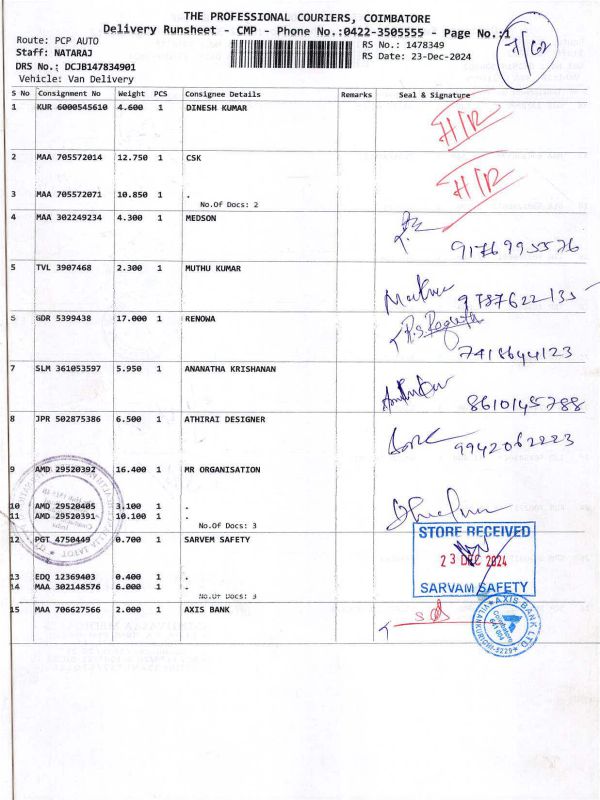 THE PROFESSIONAL COURIERS, COIMBATORE
Delivery Runsheet - CMP - Phone No.:0422-3505555 - Page No.:1
Route: PCP AUTO
RS No.: 1478349
Staff: NATARAJ
RS Date: 23-Dec-2024
DRS No.: DCJB147834901
Vehicle: Van Delivery
S No Consignment No Weight PCS Consignee Details Remarks Seal & Signature
1 KUR 6000545610 4.600 1 DINESH KUMAR
H/R
2 MAA 705572014 12.750 1 CSK
H/R
3 MAA 705572071 10.850 1 .
No.Of Docs: 2
4 MAA 302249234 4.300 1 MEDSON
9176995576
5 TVL 3907468 2.300 1 MUTHU KUMAR
9787622135
6 GDR 5399438 17.000 1 RENOWA
7418644123
7 SLM 361053597 5.950 1 ANANATHA KRISHANAN
8610145788
8 JPR 502875386 6.500 1 ATHIRAI DESIGNER
9942062223
9 AMD 29520392 16.400 1 MR ORGANISATION
10 AMD 29520405 3.100 1 .
11 AMD 29520391 10.100 1 .
No.Of Docs: 3
12 PGT 4750449 0.700 1 SARVEM SAFETY
STORE RECEIVED
23 DEC 2024
SARVAM SAFETY
13 EDQ 12369403 0.400 1 .
14 MAA 302148576 6.000 1 .
No.Of Docs: 3
15 MAA 706627566 2.000 1 AXIS BANK
AXIS BANK LTD.
Coimbatore